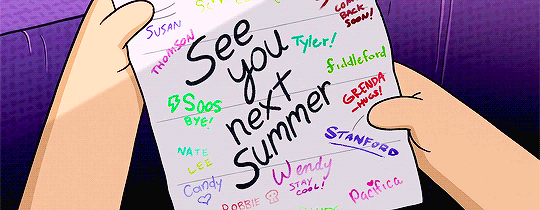 COME
BACK
SOON!
SUSAN
THOMSON
See
you
next
summer
Tyler!
fiddleford
GRENDA
-HUGS!
Soos
BYE!
STANFORD
NATE
LEE
Wendy
STAY
COOL!
Candy
ROBBIE
Pacifica